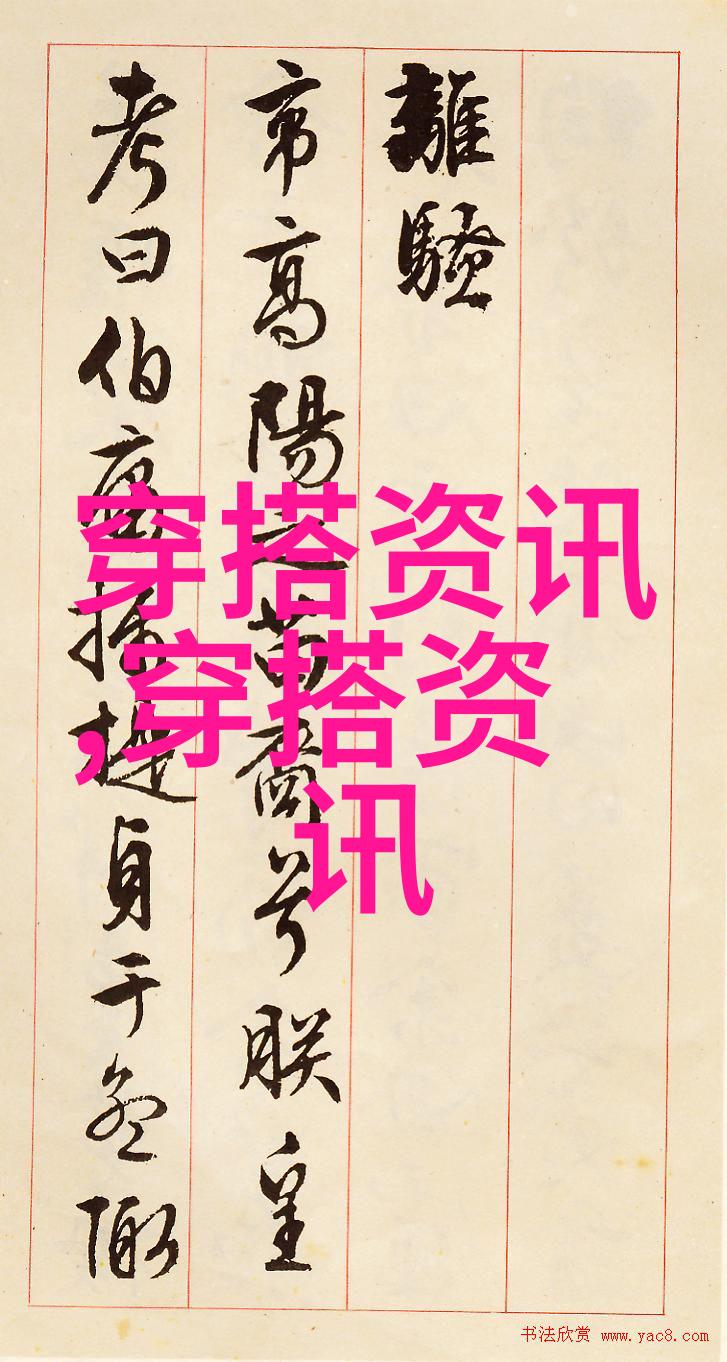 離騷
帝高陽之苗裔兮朕皇
考曰伯庸攝提貞于孟陬
穿搭资讯
,穿搭资
讯
书法欣赏 www.yac8.com